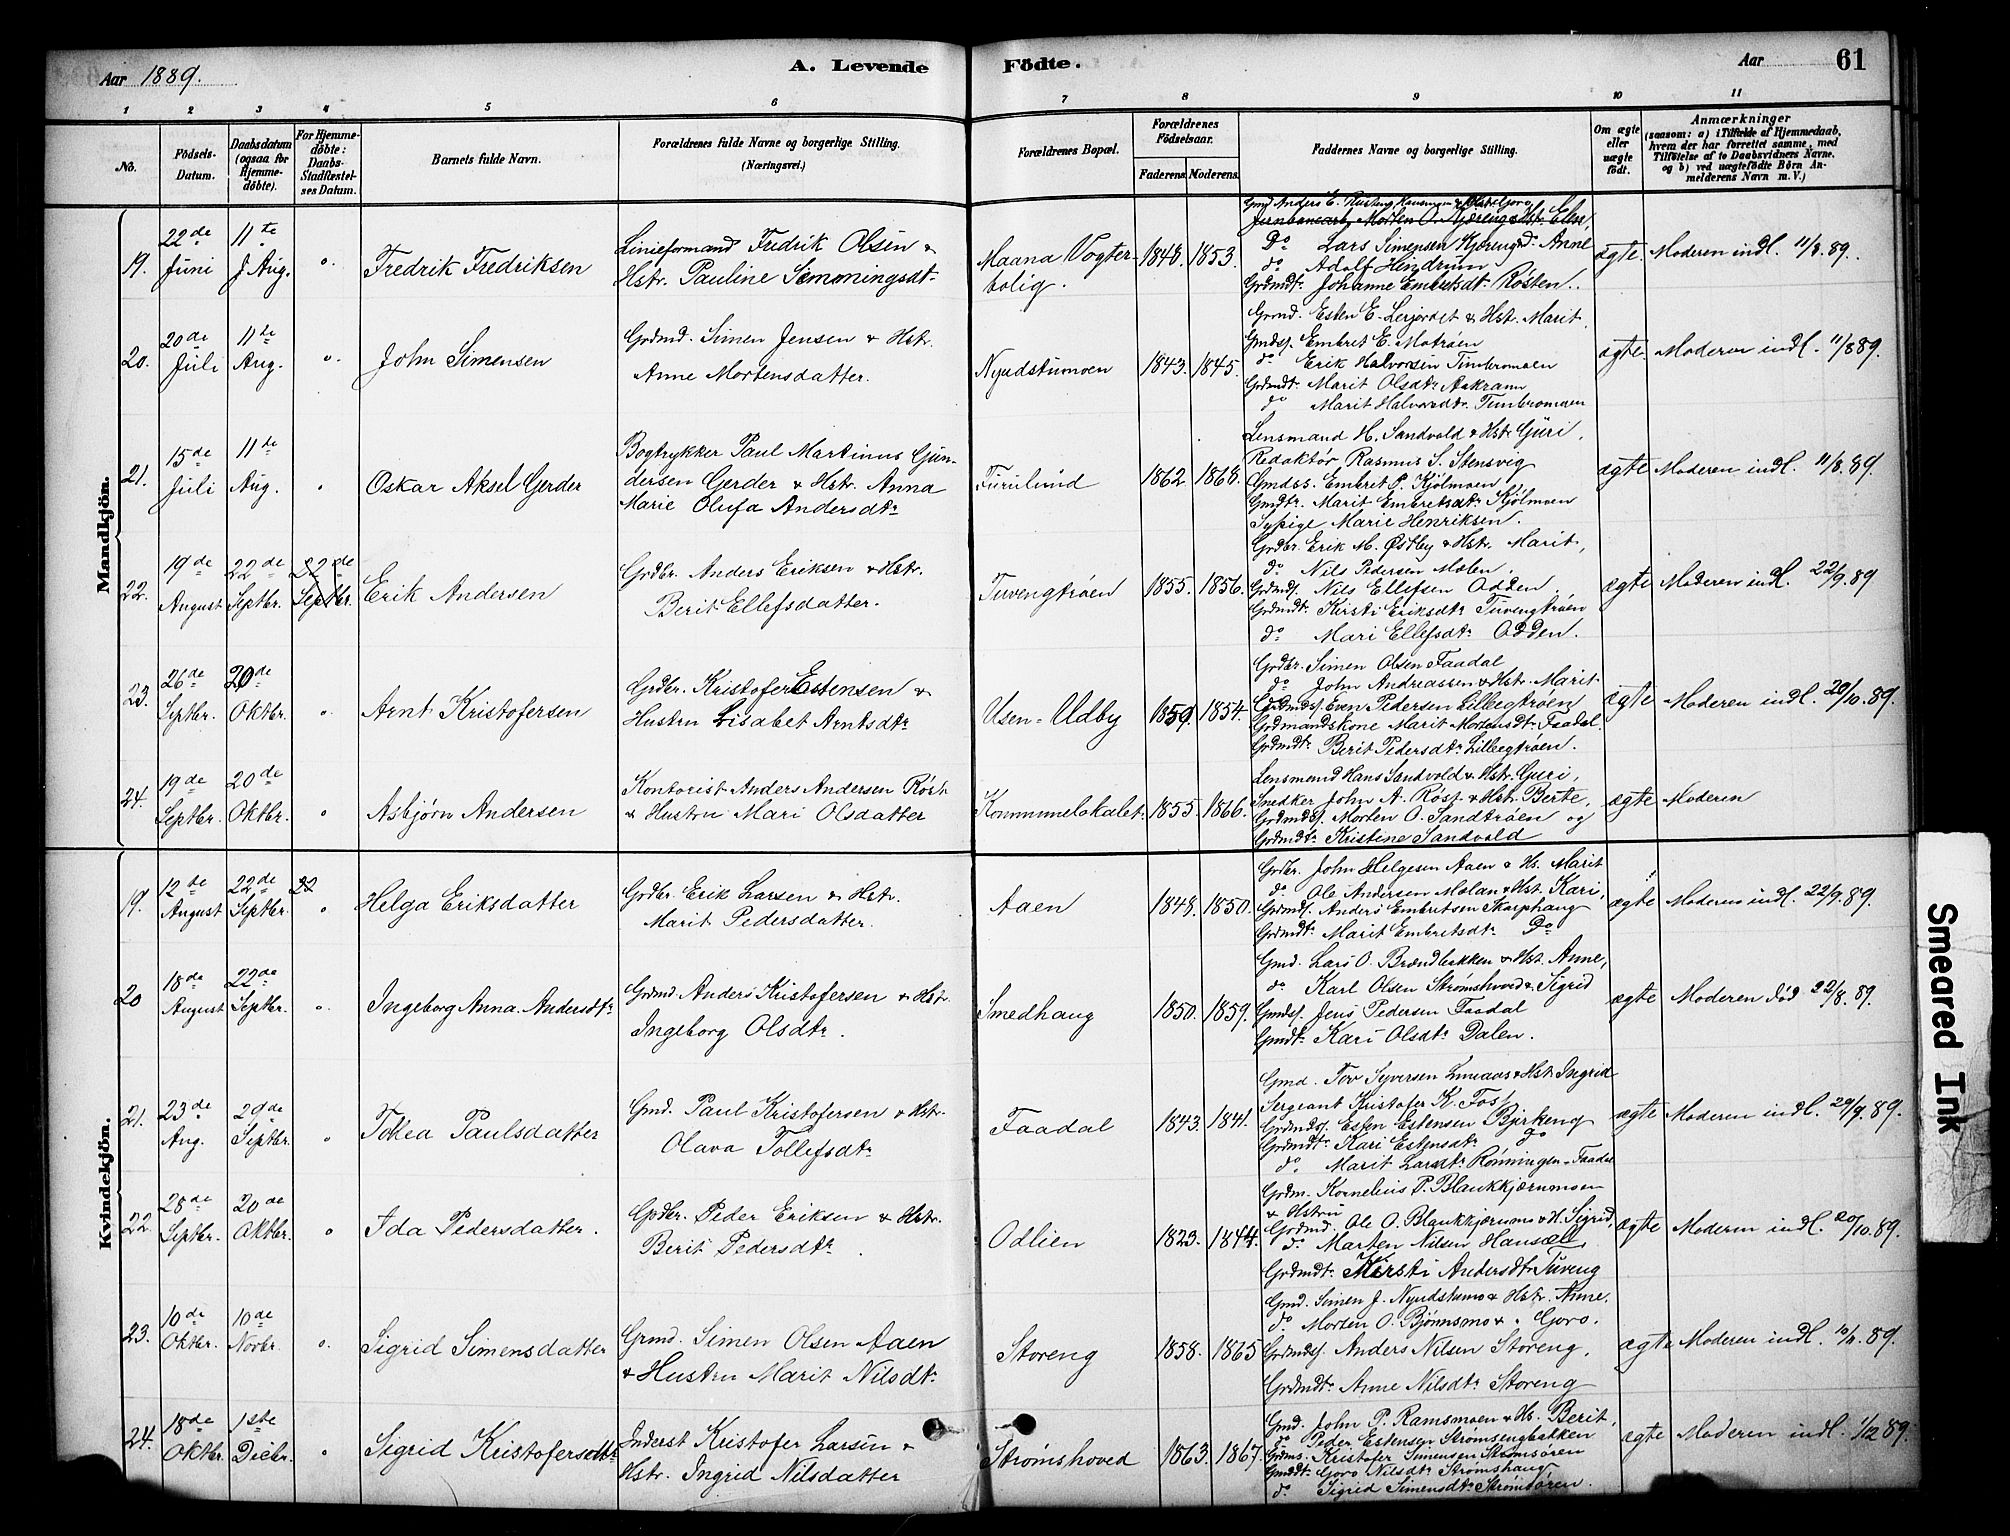 Aar 1889.
A. Levende Födte.
Aar 61
1 2 3 4 5 6 7 8 9 10 11
No.
Födsels-Datum.
Daabsdatum (ogsaa for Hjemmedöbte).
For Hjemmedöbte: Daabs-Stadfæstelses Datum.
Barnets fulde Navn.
Forældrenes fulde Navne og borgerlige Stilling. (Næringsvei.)
Forældrenes Bopæl.
Forældrenes Födselsaar.
Faderens. Moderens.
Faddernes Navne og borgerlige Stilling.
Om ægte eller uægte födt.
Anmærkninger
(saasom: a) i Tilfælde af Hjemmedaab, hvem der har forrettet samme, med Tilföielse af to Daabsvidners Navne, og b) ved uægtefödte Börn Anmelderens Navn m. V.)
Mandkjön.
19. 22de Juni 11te Aug. Fredrik Fredriksen
Linieformand Fredrik Olsen &
Hstr. Pauline Simoningsdt.
Maana Vogterbolig. 1848. 1853.
Gmd Anders E. Husmann & Hstr. Goro
Jernbanearb. Morten O. Kjæreng & Hst. Elen,
Do Lars Simensen Kjæreng do Anne
do Adolf Hindrum
Grdmdt. Johanne Embretsdt. Røsten.
ægte. Moderen indl. 11/8. 89.
20. 20de Juli 11te Aug. John Simensen
Grdmd. Simen Jensen & Hstr.
Anne Mortensdatter.
Nyudstumoen 1843. 1845.
Grmd. Esten E. Lerjordet & Hst. Marit
Gmdsj. Embret E. Motrøen
do Erik Halvorsen Timbromoen
Grdmdt. Marit Olsdtr Aakrann
do Marit Halvorsdtr. Timbromoen
ægte Moderen indl. 11/8 89.
21. 15de Juli 11te Aug. Oskar Aksel Gerder
Bogtrykker Paul Martinus Gundersen Gerder & Hstr. Anna
Marie Olufa Andersdtr
Furulund 1862. 1868.
Lensmand H. Sandvold & Hstr Guri,
Redaktør Rasmus S. Stensvig
Gmdss. Embret P. Kjølmoen
Gmdtr. Marit Embretsdtr Kjølmoen
Sypige Marie Henriksen.
ægte Moderen indl. 11/8. 89.
22. 19de August 22de Septbr. 22de Septbr. Erik Andersen
Grdbr. Anders Eriksen & Hstr.
Berit Ellefsdatter.
Tuvengtrøen 1855. 1856.
Grdbr. Erik M. Østby & Hstr. Marit,
do Nils Pedersen Moen.
Grdmdsj. Nils Ellefsen Odden
Grdmdt. Kirsti Eriksdtr Tuvengtrøen
do Mari Ellefsdtr Odden.
ægte Moderen indl. 22/9. 89
23. 26de Septbr. 20de Oktbr. Arnt Kristofersen
Grdbr. Kristofer Estensen &
Hustru Lisabet Arntsdtr
Usen-Udby 1859. 1854.
Grdbr. Simen Olsen Faadal
do John Andreassen & Hstr. Marit
Grdmdsj. Even Pedersen Lillegtrøen
Grdmandskone Marit Mortensdtr Faadal.
Grdmdt. Berit Pedersdtr Lillegtrøen.
ægte Moderen indl. 20/10. 89.
24. 19de Septbr. 20de Oktbr. Asbjørn Andersen
Kontorist Anders Andersen Røst
& Hustru Mari Olsdatter
Kommunelokalet. 1855. 1866.
Lensmand Hans Sandvold & Hstr. Guri,
Snedker John A. Røst & Hstr. Berte,
Grdmdsj. Morten O. Sandtrøen og
Grdmdtr Kristine Sandvold
ægte Moderen
Kvindekjön.
19. 12de August 22de Septbr. 22 Helga Eriksdatter
Grdbr. Erik Larsen & Hstr.
Marit Pedersdatter.
Aaen 1848. 1850.
Grdbr. John Helgesen Aaen & Hs. Marit
do Ole Andersen Moan & Hst. Kari,
Grdmdsj. Anders Embretsen Skarphaug
Grdmdtr Marit Embretsdtr Do
ægte Moderen indl. 22/9. 89.
20 18de August 22de Septbr. Ingeborg Anna Andersdtr
Grdmd. Anders Kristofersen & Hstr.
Ingeborg Olsdtr.
Smedhaug 1850. 1859.
Gmd. Lars O. Brændbakken & Hst. Anne,
do Karl Olsen Strømshoved & Sigrid
Gmdsj. Jens Pedersen Faadal
Gmdtr Kari Olsdtr Dalen.
ægte Moderen død 22/8. 89.
21. 23de Aug. 29de Septbr. Tokea Paulsdatter
Gmd. Paul Kristofersen & Hstr.
Olava Tollefsdtr
Faadal 1843. 1841.
Gmd. Tov Syversen & Hst. Ingrid
Sergeant Kristofer K. Fost
Grdmdsj. Esten Estensen Bjirkeng
Grdmdtr Kari Estensdtr do
do Marit Larsdtr Rønningen-Faadal
ægte Moderen indl. 29/9. 89.
22. 28de Septbr. 20de Oktbr. Ida Pedersdatter.
Grdbr. Peder Eriksen & Hstr.
Berit Pedersdtr.
Odlien 1823. 1844.
Grdm. Kornelius P. Blankkjærnmoen
& Hstru
Grdmd. Ole O. Blankkjærnmo & H. Sigrid
do Marten Nilsen Hansæl
Grdmdtr Kirsti Andersdtr Tuveng
ægte Moderen indl. 20/10. 89.
23. 10de Oktbr. 10de Novbr. Sigrid Simensdatter
Grmd. Simen Olsen Aaen
& Hustru Marit Nilsdtr
Storeng 1858. 1865
Gmd. Simen J. Nyudstumo & Hstr. Anne.
do Morten O. Bjønnsmo & " Goro.
Grdmdsj. Anders Nilsen Storeng.
Grdmdtr Anne Nilsdtr Storeng
ægte Moderen indl. 10/11. 89.
24. 18de Oktbr. 1ste Decbr. Sigrid Kristofersdtr
Inderst Kristofer Larsen &
Hstr. Ingrid Nilsdatter
Strømshoved 1863. 1867.
Gmd. John P. Ramsmoen & Hs. Berit,
do Peder Estensen Strømsengbakken
Gdms. Kristofer Simensen Strømsøren
Gmddt. Goro Nilsdtr Strømshaug
do Sigrid Simensdtr Strømsøren.
ægte Moderen indl. 1/12 89.
Smeared Ink